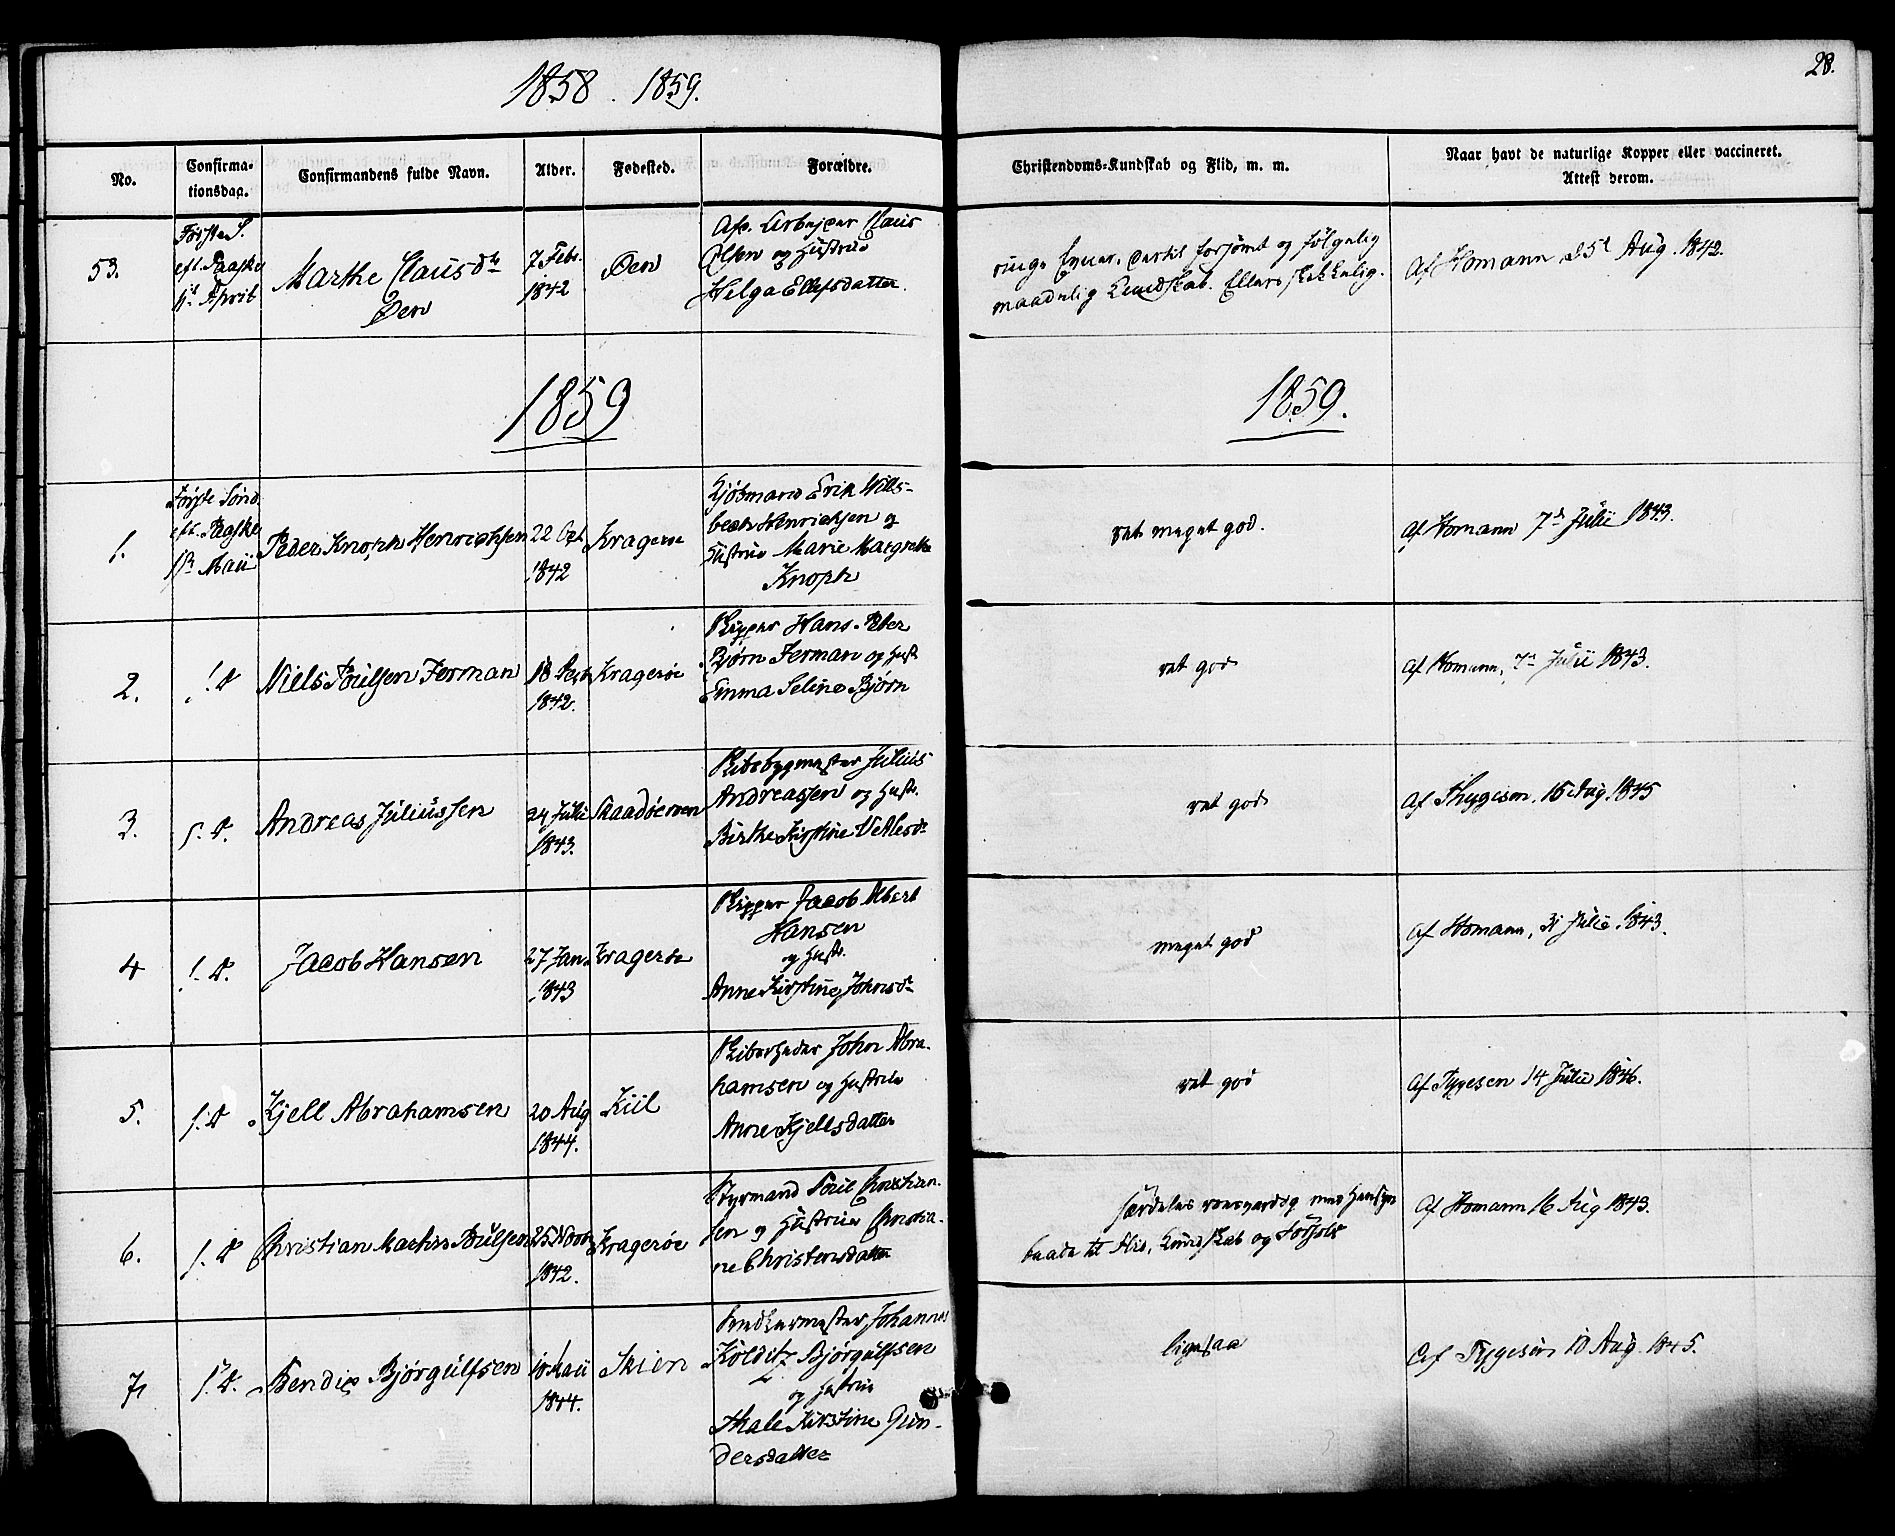 28.
1858 . 1859.
No.
Confirma-
tionsdag.
Confirmandens fulde Navn.
Alder.
Fødested.
Forældre.
Christendoms-Kundskab og Flid, m. m.
Naar havt de naturlige Kopper eller vaccineret.
Attest derom.
53.
Første S.
eft. Paaske
11te April
Marthe Clausdtr
Øen
7 Febr.
1842
Øen
Arbejder Claus
Olsen og Hustrue
Helga Ellefsdatter.
ringe Evner, forsømt og følgelig
maadelig Kundskab. Ellers skikkelig.
Af Homann 25t Aug. 1842.
1859
1859.
1.
Første Sönd.
eft. Paaske
1ste Maii
Peder Knoph Henrichsen
22 Oct
1842
Kragerøe
Kjöbmand Erik Wills-
bech Henrichsen og
Hustrue Marie Margrethe
Knoph
ret meget god.
af Homann 7de Julii 1843.
2.
s. D
Niels Poulsen Ferman
18 Sept
1842.
Kragerøe
Skipper Hans Peter
Bjørn Ferman og Hust.
Emma Seline Bjørn
ret god
af Homann, 7de Julii 1843.
3.
s. D.
Andreas Juliussen
24 Julii
1843.
Skaadöeroen
Skibsbygmester Julius
Andreassen og Hustr.
Birthe Kirstine Vetlesdr
ret god
af Thygesen, 15 Aug. 1845
4
s. D.
Jacob Hansen
27 Jan.
1843
Kragerøe
Skipper Jacob Albert
Hansen
og Hustr.
Anne Kirstine Johnsdr
meget god
af Homann, 31 Julii 1843.
5.
s. D
Kjell Abrahamsen
20 Aug
1844.
Kiil
Skibsreder John Abra-
hamsen og Hustrue
Anne Kjellsdatter
ret god
af Tygesen 14 Julii 1846.
6.
s. D
Christian Martin Poulsen
25 Novb
1842.
Kragerøe
Styrmand Poul Christian-
sen og Hustrue Christia-
ne Christensdatter
særdeles roesværdig med Hensyn
baade til Flid, Kundskab og Forhold
Af Homann 16 Aug 1843.
7.
s. D.
Bendix Bjørgulfsen
10 Maii
1844.
Skien
Snedkermester Johannes
Kolditz Bjørgulfsen
og Hustrue
Thale Kirstine Gun-
dersdatter
ligesaa
Af Tygesen 10 Aug. 1845.